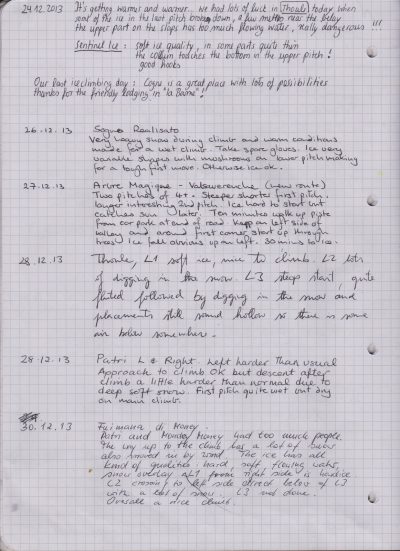 29.12.2013 It's getting warmer and warmer. We had lots of luck in Thoule today when
most of the ice in the last pitch broke down, a few meters near the belay
the upper part on the slaps has too much flowing water, really dangerous !!!
Sentinel Ice: soft ice quality, in some parts quite thin
the column touches the bottom in the upper pitch!
good hooks
Our last ice climbing day: Cogne is a great place with lots of possibilities
thanks for the friendly lodging in "la Barme"!
26.12.13 Sogno Realisato
Very heavy snow during climb and warm conditions
made for a wet climb. Take spare gloves. Ice very
variable shapes with mushrooms on lower pitch making
for a tough first move. Otherwise ice ok.
27.12.13 Arbre Magique - Valsavarenche (new route)
Two pitches of 4+. Steeper shorter first pitch,
longer interesting 2nd pitch. Ice hard to start but
catches sun later. Ten minutes walk up piste
from car park at end of road. Keep on left side of
valley and around first corner start up through
trees. Ice fall obvious up on left. 30 mins to ice.
28.12.13 Thoule, L1 soft ice, nice to climb. L2 lots
of digging in the snow. L3 steep start, quite
fluted followed by digging in the snow and
placements still sound hollow so there is some
air below somewhere.
28.12.13 Patri L & Right. Left harder than usual
Approach to climb OK but descent after
climb a little harder than normal due to
deep soft snow. First pitch quite wet but dry
on main climb.
30.12.13 Fiumana di Money.
Patri and Money Money had too much people.
The way up to the climb has a lot of snow
also moved in by wind. The ice has all
kind of qualities: hard, soft, flowing water,
snow overlay. L1 from right side is hard ice
L2 crossing to left side direct below of L3
with a lot of snow. L3 not done.
Overall a nice climb.